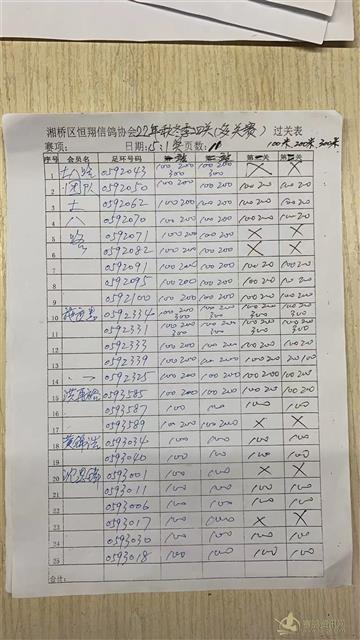 湘桥区恒翔信鸽协会22年秋冬季四关(多关赛)过关表
赛项: 日期: 页数: 100米 200米 300米
序号 会员名 足环号码
1 0592043 100 200 300 100 200 300 × ×
2 团队 0592050 100 200 100 200 100 200 100 200
3 0592062 100 200 100 200 100 200 100 200
4 0592070 100 200 100 200 100 200 100 200
5 路 0592071 100 200 100 200 × ×
6 0592082 100 200 100 200 × ×
7 0592091 100 200 100 200 100 200 100 200
8 0592095 100 200 100 200 100 200 100 200
9 0592100 100 200 100 200 100 200 100 200
10 0592334 100 200 300 100 200 300 100 200 300 100 200 300
11 0592331 100 200 300 100 200 300 100 200 300 100 200 300
12 0592333 100 200 100 200 100 200 100 200
13 0592339 100 200 100 200 100 200
14 0592325 100 200 100 200 100 200 100 200
15 0593585 100 200 100 200 100 200 100 200
16 0593587 100 100 100 100
17 0593589 100 200 100 200 × ×
18 0593034 100 100 100 100
19 0593040 100 100 100 100
20 0593001 100 100 × ×
21 0593011 100 100 100 100
22 0593006 100 100 100 100
23 0593017 100 100 × ×
24 0593030 100 100 100 100
25 0593018 100 100 100 100
合计:
赛鸽资讯网